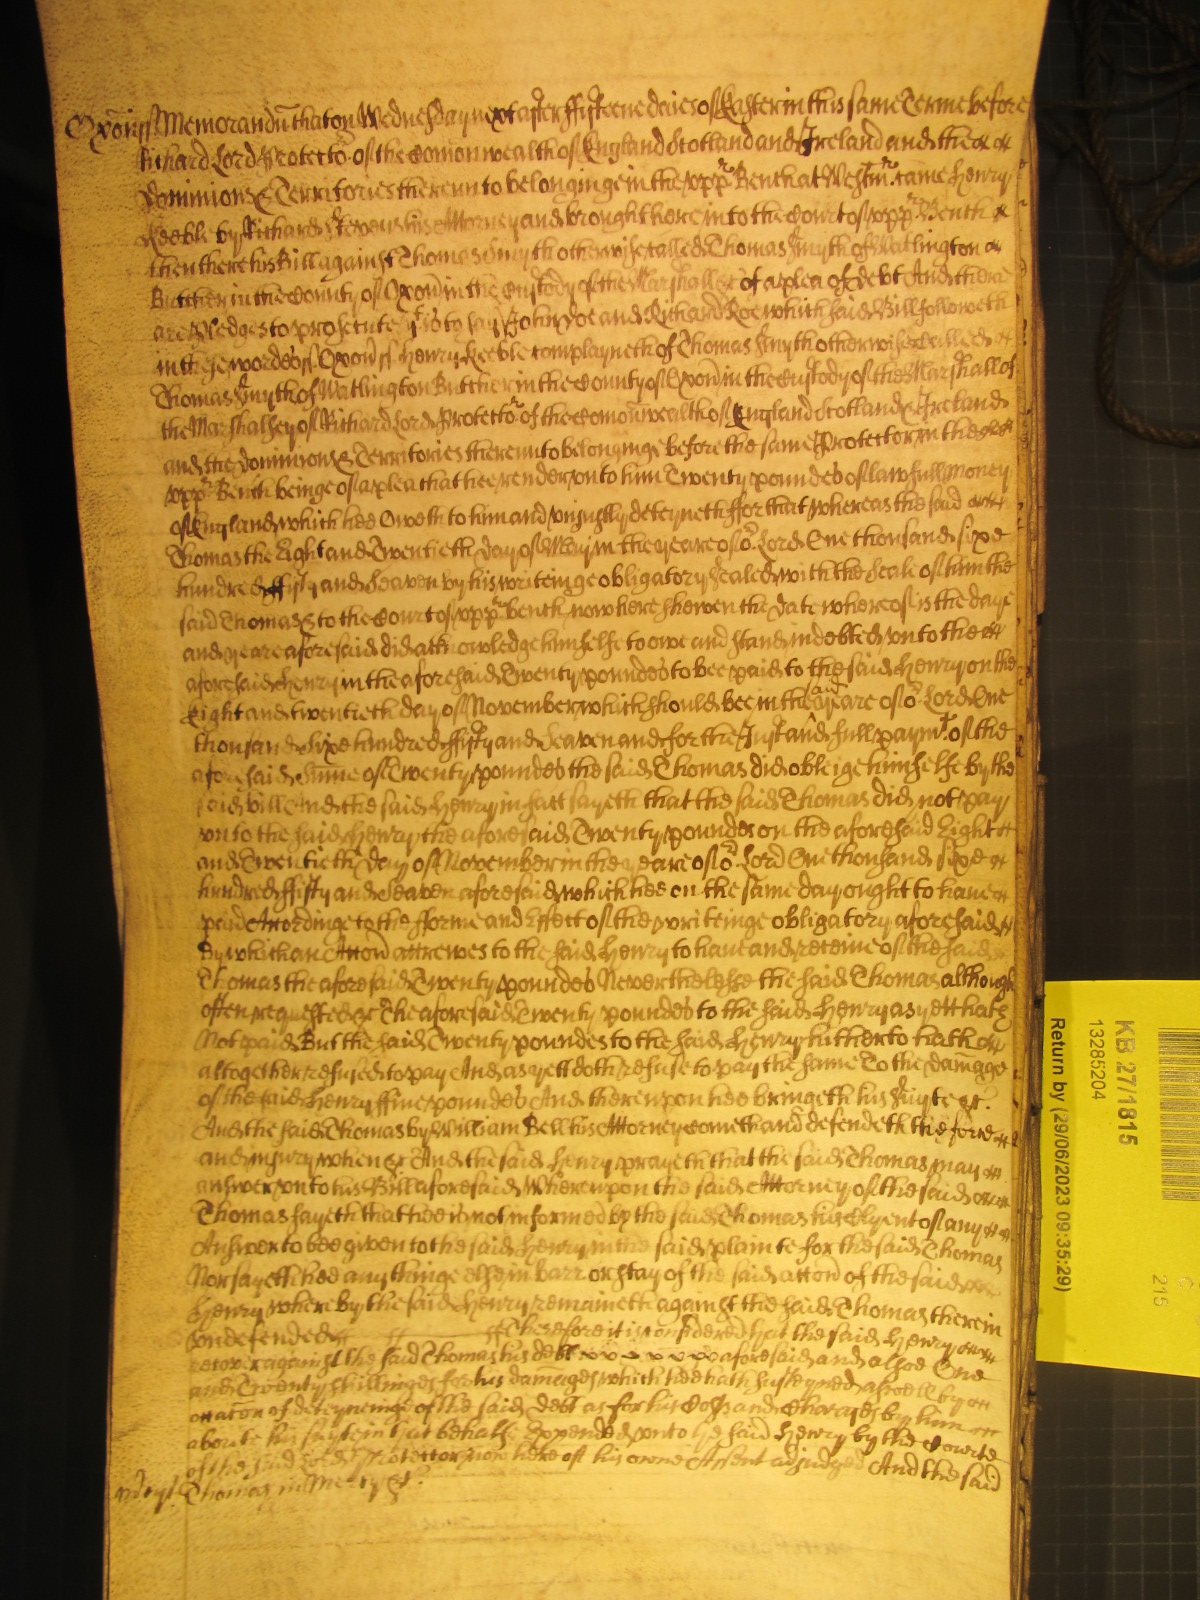 Oxon̄ ss Memorandū that on Wednesday next after ffifteene daies of Easter in this same Terme before
Richard Lord Protectoʳ of the Comonwealth of England Scotland and Ireland and the
Dominions & Territories thereunto belonginge in the vppʳ Bench at Westmʳ. came Henry
Keeble by Richard Stevens his Attorney and brought here into the Court of vppʳ Bench
then there his Bill against Thomas Smyth otherwise called Thomas Smyth of Watlington
Butcher in the County of Oxon̄ in the Custody of the Marshall &c of a plea of debt And there
are Pledges to prosecute yᵗ is to say John Doe and Richard Roe which said Bill followeth
in these wordes ss. Oxon̄ ss Henry Keeble complayneth of Thomas Smyth otherwise called
Thomas Smyth of Watlington Butcher in the County of Oxon̄ in the Custody of the Marshall of
the Marshalsey of Richard Lord Protectoʳ of the Comonwealth of England Scotland & Ireland
and the Dominions & Territories thereunto belonginge before the same Protector in the
vppʳ Bench beinge of a plea that hee render vnto him Twenty poundes of lawfull money
of England which hee Oweth to him and vniustly deteyneth ffor that whereas the said
Thomas the Eight and Twentieth day of May in the yeare of oʳ Lord One thousand sixe
hundred ffifty and Seaven by his writeinge obligatory sealed with the Seale of him the
said Thomas & to the Court of vppʳ Bench now here shewen the date whereof is the daye
and yeare aforesaid did acknowledge himselfe to owe and stand indebted vnto the
aforesaid Henry in the aforesaid Twenty poundes to bee paid to the said Henry on the
Eight and twentieth day of November which should bee in the said yeare of oʳ Lord One
thousand sixe hundred ffifty and Seaven and for the Just and full paymᵗ. of the
aforesaid Sum̄e of Twenty poundes the said Thomas did obleige himselfe by the
said bill And the said Henry in fact sayeth that the said Thomas did not pay
vnto the said Henry the aforesaid Twenty poundes on the aforesaid Eight
and Twentieth day of November in the yeare of oʳ Lord One thousand sixe
hundred ffifty and Seaven aforesaid which hee on the same day ought to haue
paid Accordinge to the fforme and Effect of the writeinge obligatory aforesaid
By which an Accon̄ accrewes to the said Henry to haue and receiue of the said
Thomas the aforesaid Twenty poundes Neverthelesse the said Thomas although
often requested &c The aforesaid Twenty poundes to the said Henry as yett hath
Not paid But the said Twenty poundes to the said Henry hitherto hath
altogether refused to pay And as yett doth refuse to pay the same To the damage
of the said Henry ffiue poundes And thereupon hee bringeth his Suyte &c.
And the said Thomas by William Bell his Attorney cometh and defendeth the force
and iniury when &c And the said Henry prayeth that the said Thomas may
answer vnto his Bill aforesaid Whereupon the said Attorney of the said
Thomas sayeth that hee is not informed by the said Thomas his Clyent of any
Answer to bee given to the said Henry in the said plainte for the said Thomas
Nor sayeth hee any thinge else in barr or stay of the said accon̄ of the said
Henry whereby the said Henry remaineth against the said Thomas therein
vndefended Therefore it is considered that the said Henry
recover against the said Thomas his debt aforesaid and alsoe One
and Twenty shillinges for his damages which hee hath susteyned aswell by
occac̄on of deteyneinge of the said debt as for his Costs and Charges by him
aboute his suyte in that behalfe Expended vnto the said Henry by the Courte
of the said Lord Protector now here of his owne Assent adiudged And the said
Thomas in Mercy &c.
KB 27/1815
13285204
Return by (29/06/2023 09:35:29)
215